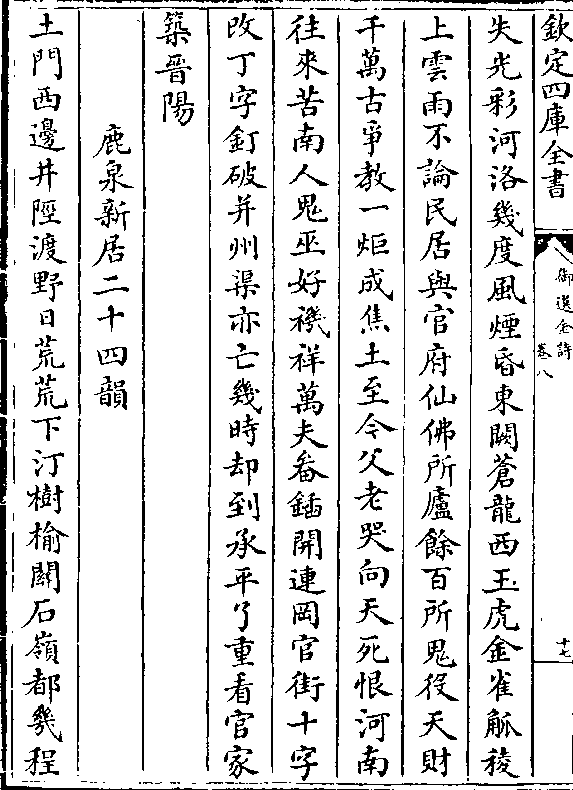 欽定四庫全書
御選金詩
卷八
十七
失光彩河洛幾度風煙昏東闕蒼龍西玉虎金雀觚稜
上雲雨不論民居與官府仙佛所廬餘百所鬼役天財
千萬古爭教一炬成焦土至今父老哭向天死恨河南
往來苦南人鬼巫好禨祥萬夫畚鍤開連岡官街十字
改丁字釘破并州渠亦亡幾時却到承平了重看官家
築晉陽
鹿泉新居二十四韻
土門西邊井陘渡野日荒荒下汀樹榆關石嶺都幾程